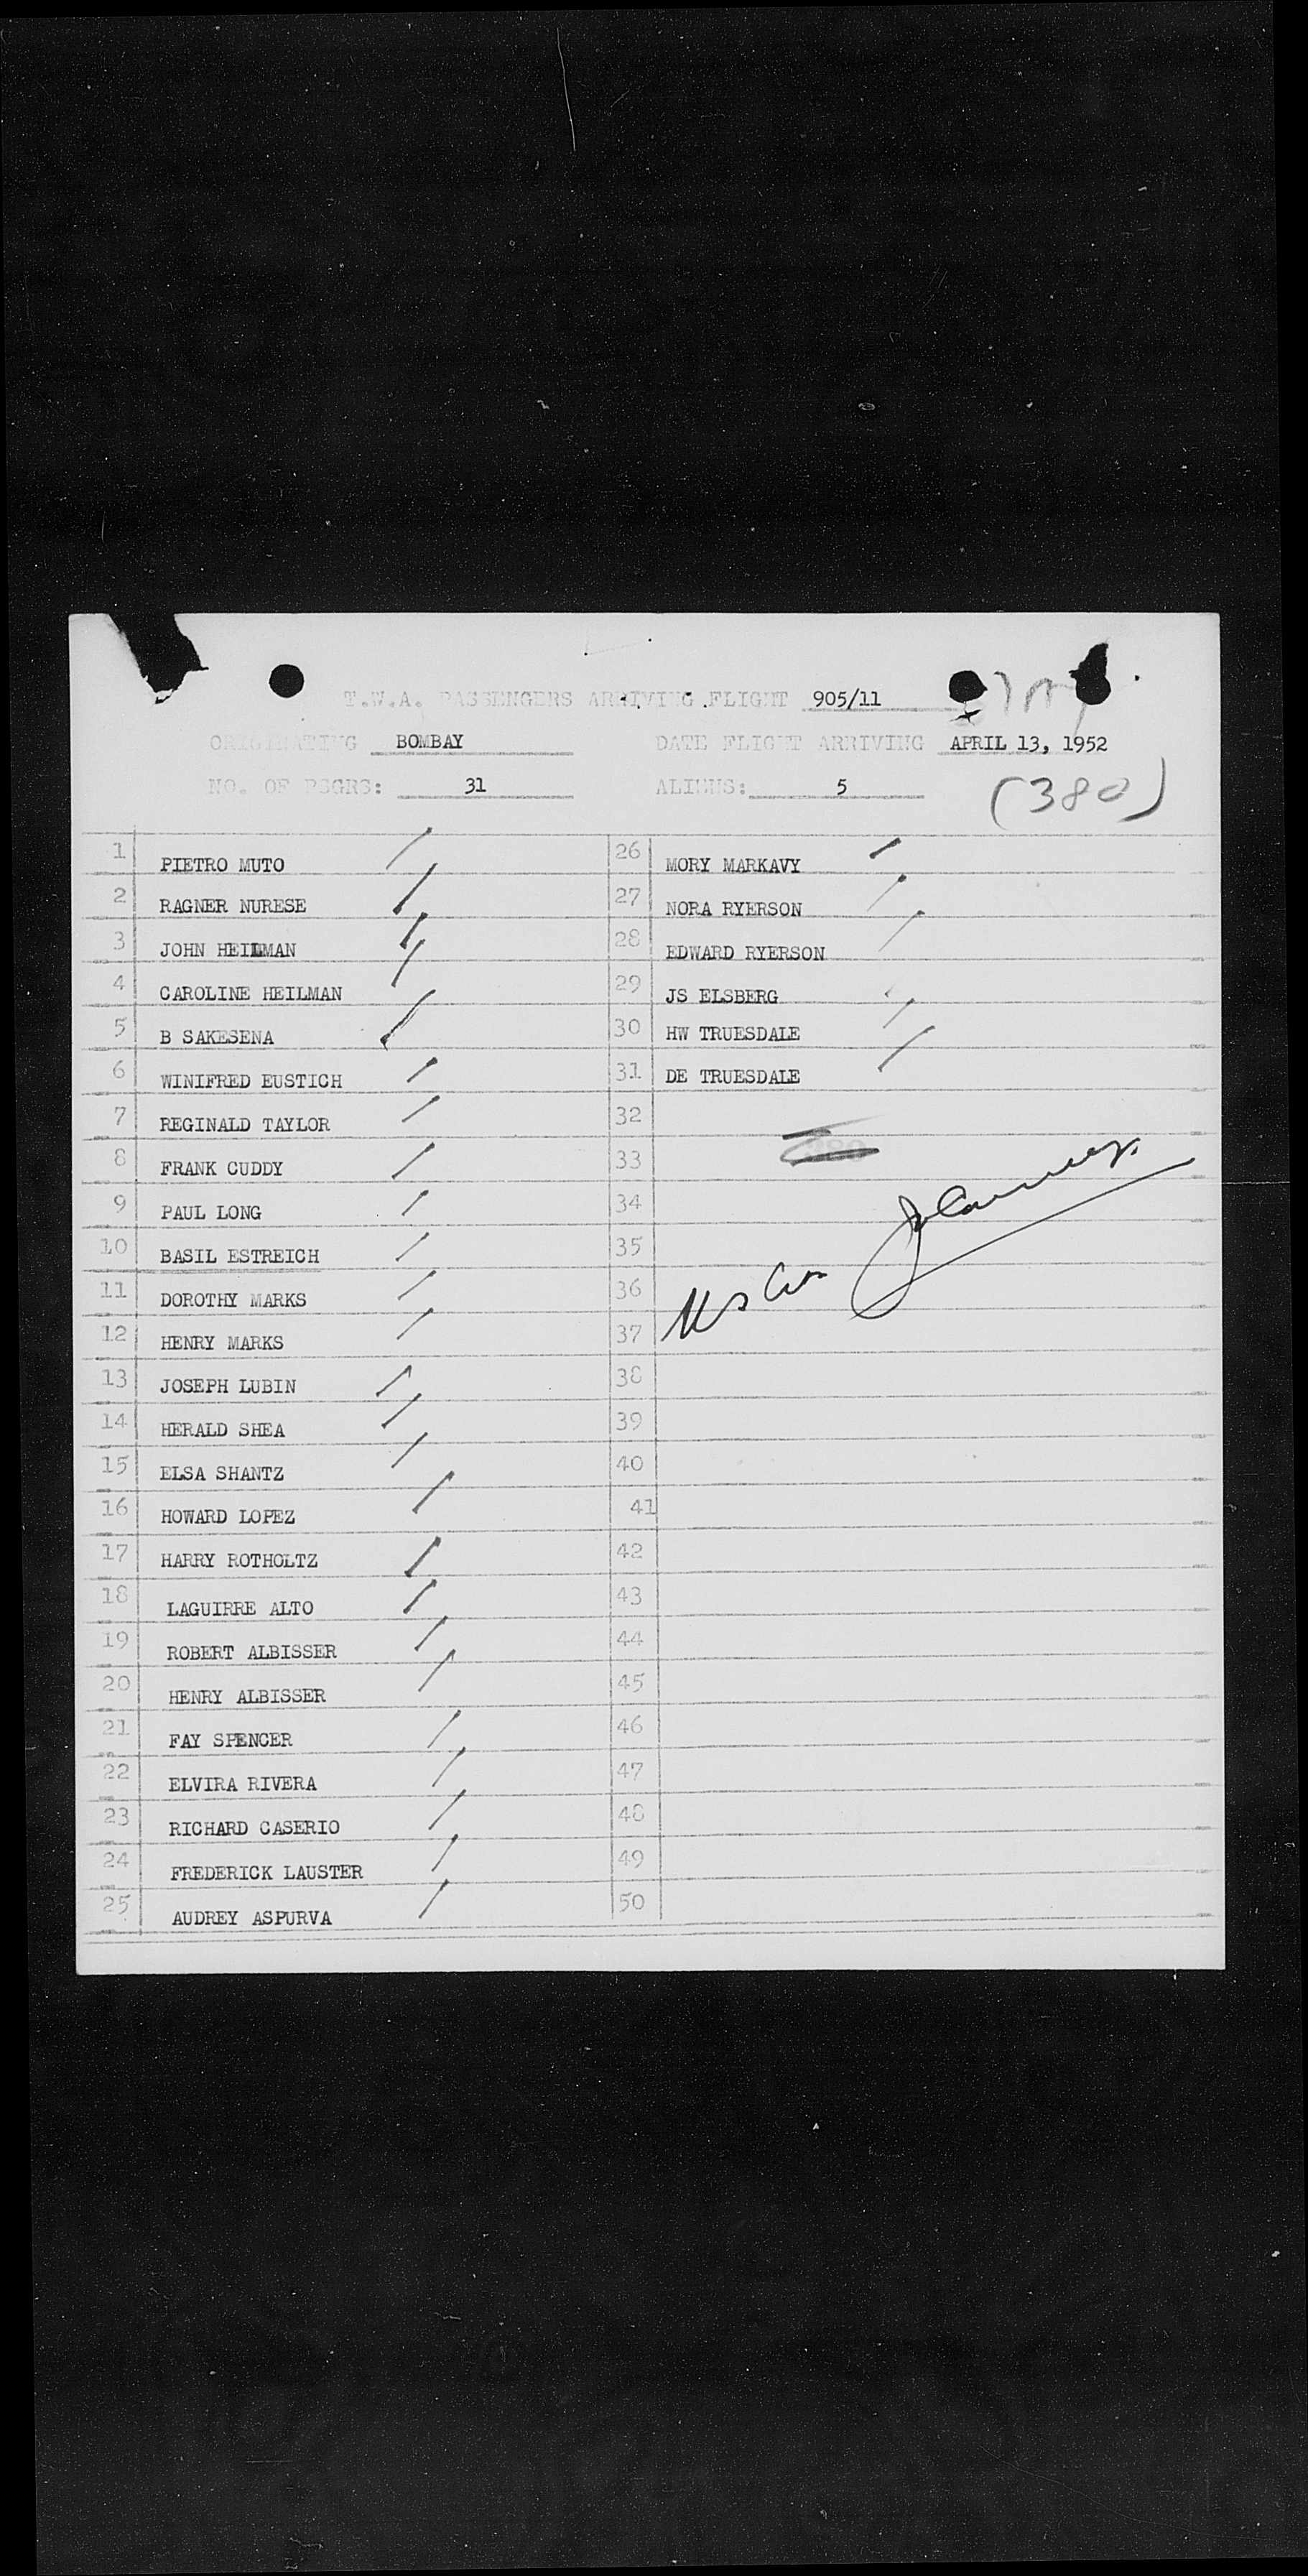 T.W.A. PASSENGERS ARRIVING FLIGHT 905/11
ORIGINATING BOMBAY DATE FLIGHT ARRIVING APRIL 13, 1952
NO. OF PSGRS: 31 ALIENS: 5 (380)
1 PIETRO MUTO
2 RAGNER NURESE
3 JOHN HEILMAN
4 CAROLINE HEILMAN
5 B SAKESENA
6 WINIFRED EUSTICH
7 REGINALD TAYLOR
8 FRANK CUDDY
9 PAUL LONG
10 BASIL ESTREICH
11 DOROTHY MARKS
12 HENRY MARKS
13 JOSEPH LUBIN
14 HERALD SHEA
15 ELSA SHANTZ
16 HOWARD LOPEZ
17 HARRY ROTHOLTZ
18 LAGUIRRE ALTO
19 ROBERT ALBISSER
20 HENRY ALBISSER
21 FAY SPENCER
22 ELVIRA RIVERA
23 RICHARD CASERIO
24 FREDERICK LAUSTER
25 AUDREY ASPURVA
26 MORY MARKAVY
27 NORA RYERSON
28 EDWARD RYERSON
29 JS ELSBERG
30 HW TRUESDALE
31 DE TRUESDALE
32
33
34
35
36
37
38
39
40
41
42
43
44
45
46
47
48
49
50